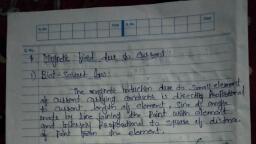 * Magnetic field due to current:
1) Biot-Savart law:
The magnetic induction due to small element
of current carrying conductor is directly proportional
to current, length of element, sine of angle
made by line joining the point with element
and inversely proportional to square of distance
of point from the element.